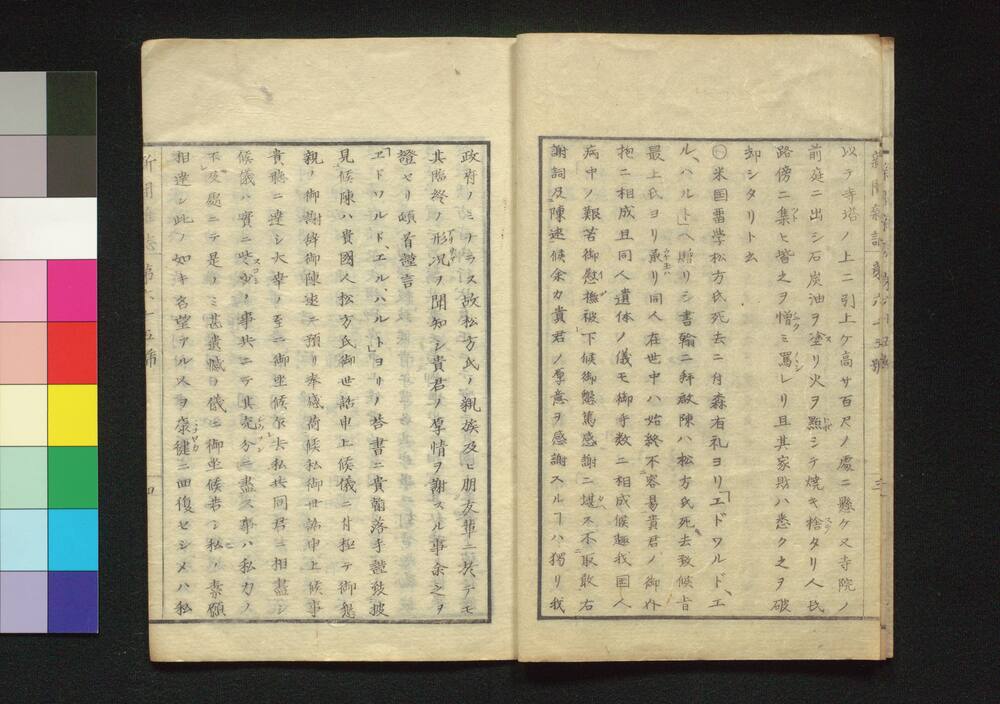 以テ寺塔ノ上ニ引上ケ高サ百尺ノ處ニ懸ケ又寺院ノ
前庭ニ出シ石炭油ヲ塗リ火ヲ點シテ焼キ捨タリ人民
路傍ニ集ヒ皆之ヲ憎ミ罵レリ且其家財ハ悉ク之ヲ破
却シタリト云
米国留学松方氏死去ニ付森有礼ヨリ「エドワルド、エ
ル、ハルト」ヘ贈リシ書翰ニ拜啟陳ハ松方氏死去致候旨
最上氏ヨリ承リ同人在世中ハ始終不容易貴君ノ御
抱ニ相成且同人遺体ノ儀モ御手数ニ相成候趣我国人
病中ノ艱苦御慰撫被下候御懇篤感謝ニ堪不取敢右
謝詞及陳述候余カ貴君ノ厚意ヲ感謝スルヿハ獨リ我
新聞雜誌 第六十五號 三
政府ノミナラス故松方氏ノ親族及ヒ朋友輩ニ於テモ
其臨終ノ形况ヲ聞知シ貴君ノ厚情ヲ謝スル事余之ヲ
證セリ頓首謹言
「エドワルド、エル、ハルト」ヨリノ答書ニ貴翰落手謹致披
見候陳ハ貴國人松方氏御世話申上候儀ニ付極テ御懇
親ノ御謝辞御陳述ニ預リ奉感荷候私御世話申上候事
貴聽ニ達シ大幸ノ至ニ御坐候尓去私共同君ニ相盡シ
候儀ハ實ニ些少ノ事共ニテ其充分ニ盡ス事ハ私力ノ
不及處ニテ是ノミ甚遺憾ノ儀ニ御坐候若シ私ノ素願
相達シ此ノ如キ名望アル人ヲ康健ニ回復セシメハ私
新聞雜誌 第六十五號 四